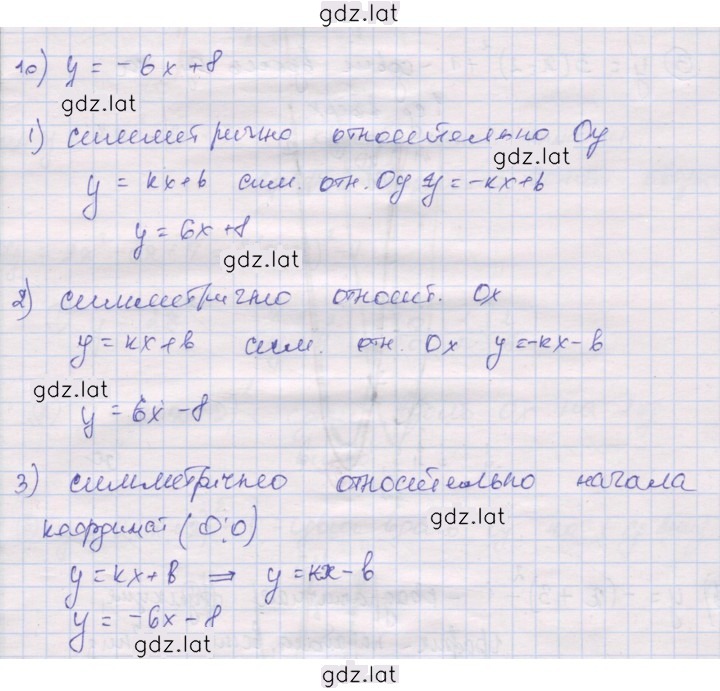 gdz.lat
10) y = -6x + 8
gdz.lat
1) симметрично относительно Oy
gdz.lat
y = kx+b сим. отн. Oy y = -kx+b
y = 6x + 8
gdz.lat
2) симметрично относит. Ox
y = kx+b сим. отн. Ox y = -kx - b
gdz.lat
y = 6x - 8
3) симметрично относительно начала
gdz.lat
координат (0;0)
y = kx + b ⇒ y = kx - b
y = -6x - 8
gdz.lat
gdz.lat